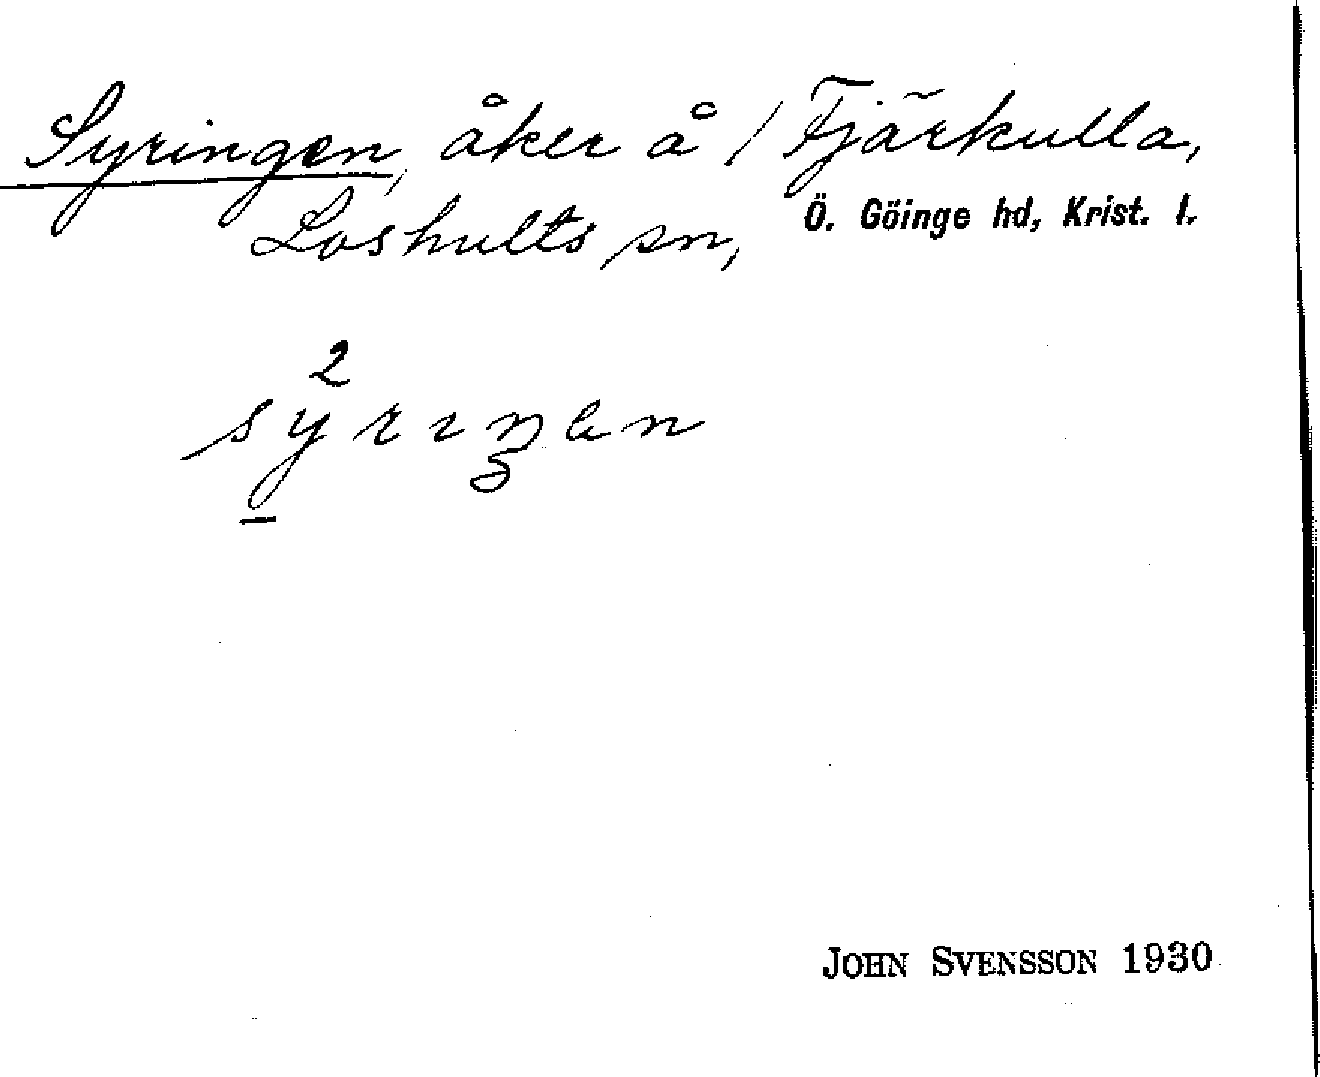 Syringen, åker å / Fjärkulla,
Loshults sn, Ö. Göinge hd, Krist. l.
2
syrɪŋen
JOHN SVENSSON 1930